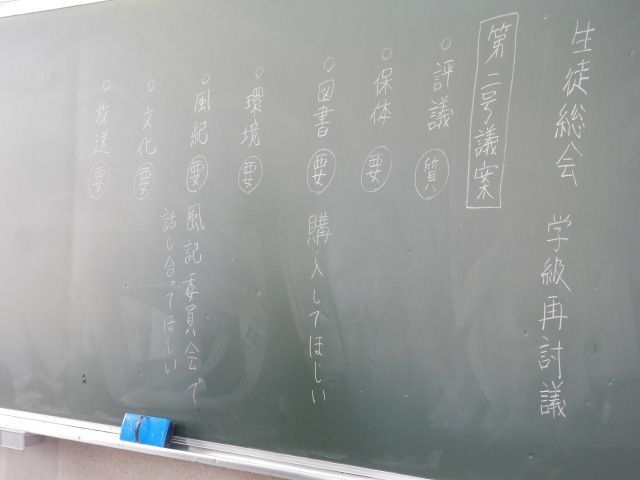 生徒総会 学級再討議
第二号議案
○評議 質
○保体 要
○図書 要 購入してほしい
○環境 要
○風紀 要 風記委員会で
話し合ってほしい
○文化 要
○放送 要